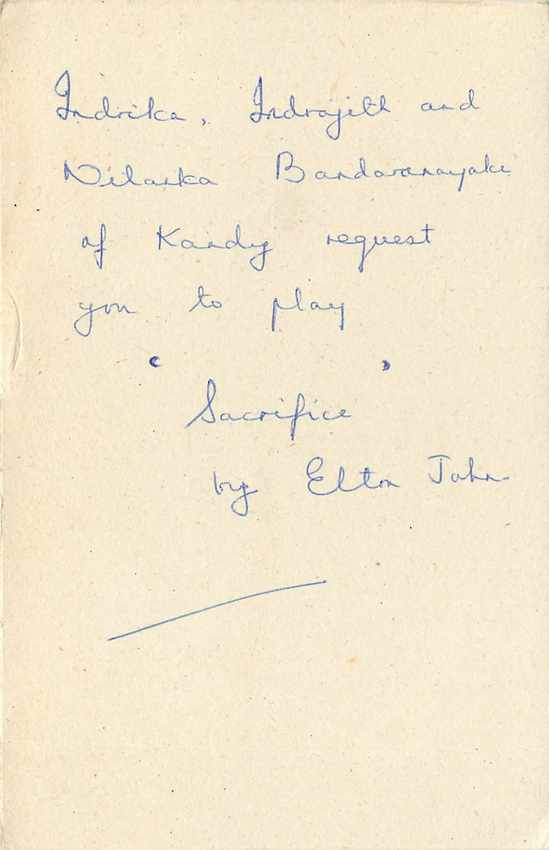 Indrika, Indrajith and
Nilanka Bandaranayake
of Kandy request
you to play
‘ ’
Sacrifice
by Elton John.